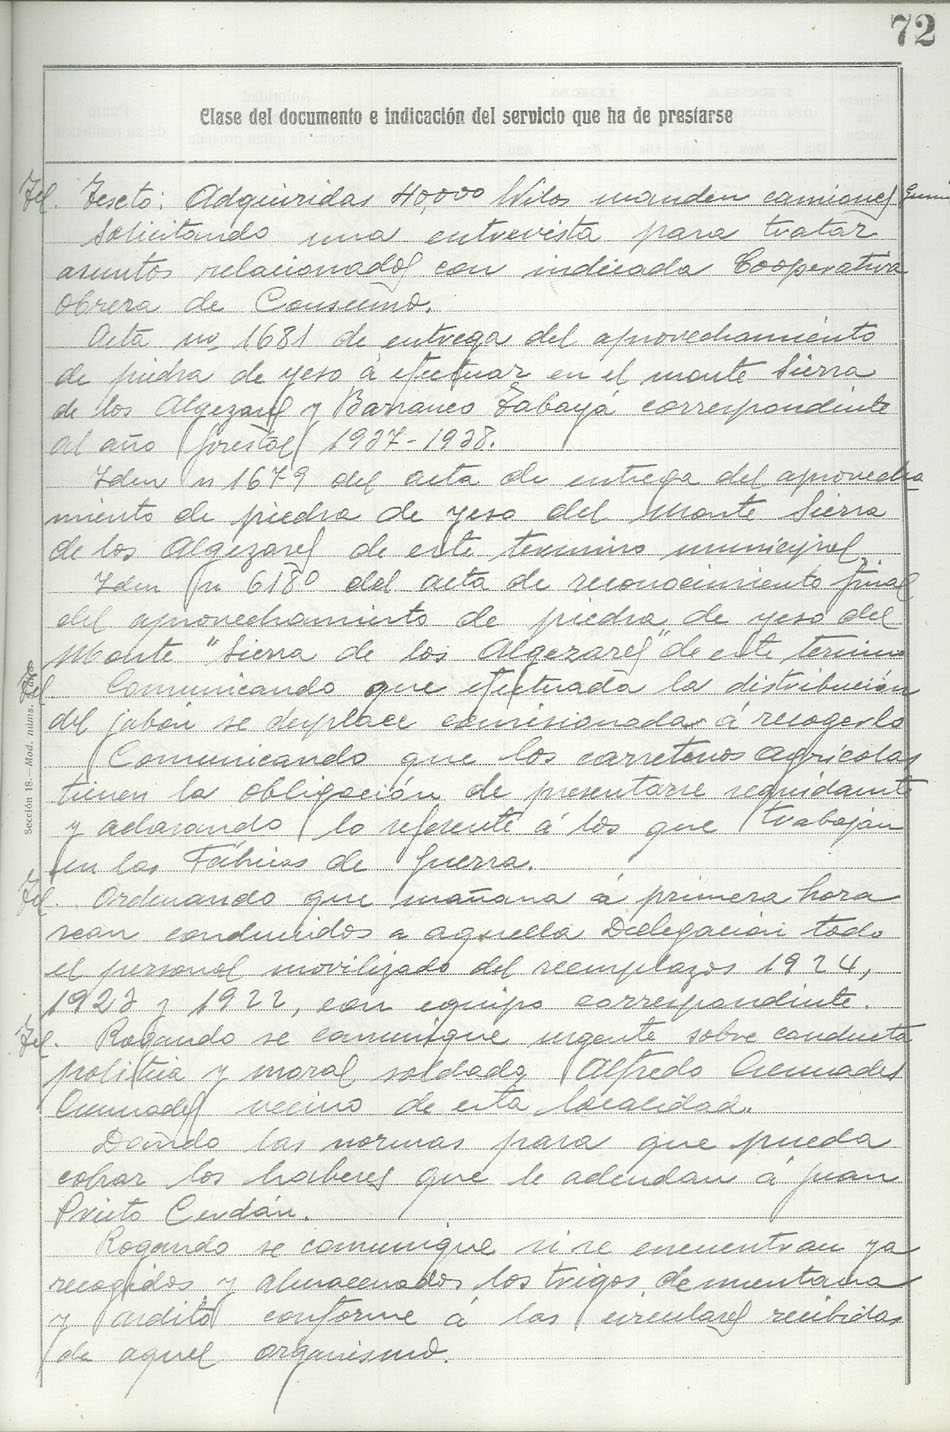 72
Clase del documento e indicación del servicio que ha de prestarse
Tel. Texto: Adquiridas 40,000 kilos manden camiones
Solicitando una entrevista para tratar
asuntos relacionados con indicada Cooperativa
Obrera de Consumo.
Acta nº 1681 de entrega del aprovechamiento
de piedra de yeso á efectuar en el monte Sierra
de los Algezares y Barranco Tabayá correspondiente
al año forestal 1937-1938.
Idem n 1679 del acta de entrega del aprovecha
miento de piedra de yeso del Monte Sierra
de los Algezares de este termino municipal.
Idem n 6180 del acta de reconocimiento final
del aprovechamiento de piedra de yeso del
Monte "Sierra de los Algezares" de este termino
Tel Comunicando que efectuada la distribución
del jabón se desplace comisionada á recogerlo
Comunicando que los carreteros agricolas
tienen la obligación de presentarse seguidamte
y aclarando lo referente á los que trabajan
en las Fábricas de Guerra.
Tel. Ordenando que mañana á primera hora
sean conducidos a aquella Delegación todo
el personal movilizado del reemplazos 1924,
1923 y 1922, con equipo correspondiente.
Tel. Rogando se comunique urgente sobre conducta
politica y moral soldado Alfredo
vecino de esta localidad.
Dando las normas para que pueda
cobrar los haberes que le adeudan á Juan
Prieto Cerdán.
Rogando se comunique si se encuentran ya
recogidos y almacenados los trigos de mentana
y ardito conforme á las circulares recibidas
de aquel organismo.
Sección 18.—Mod. núms.